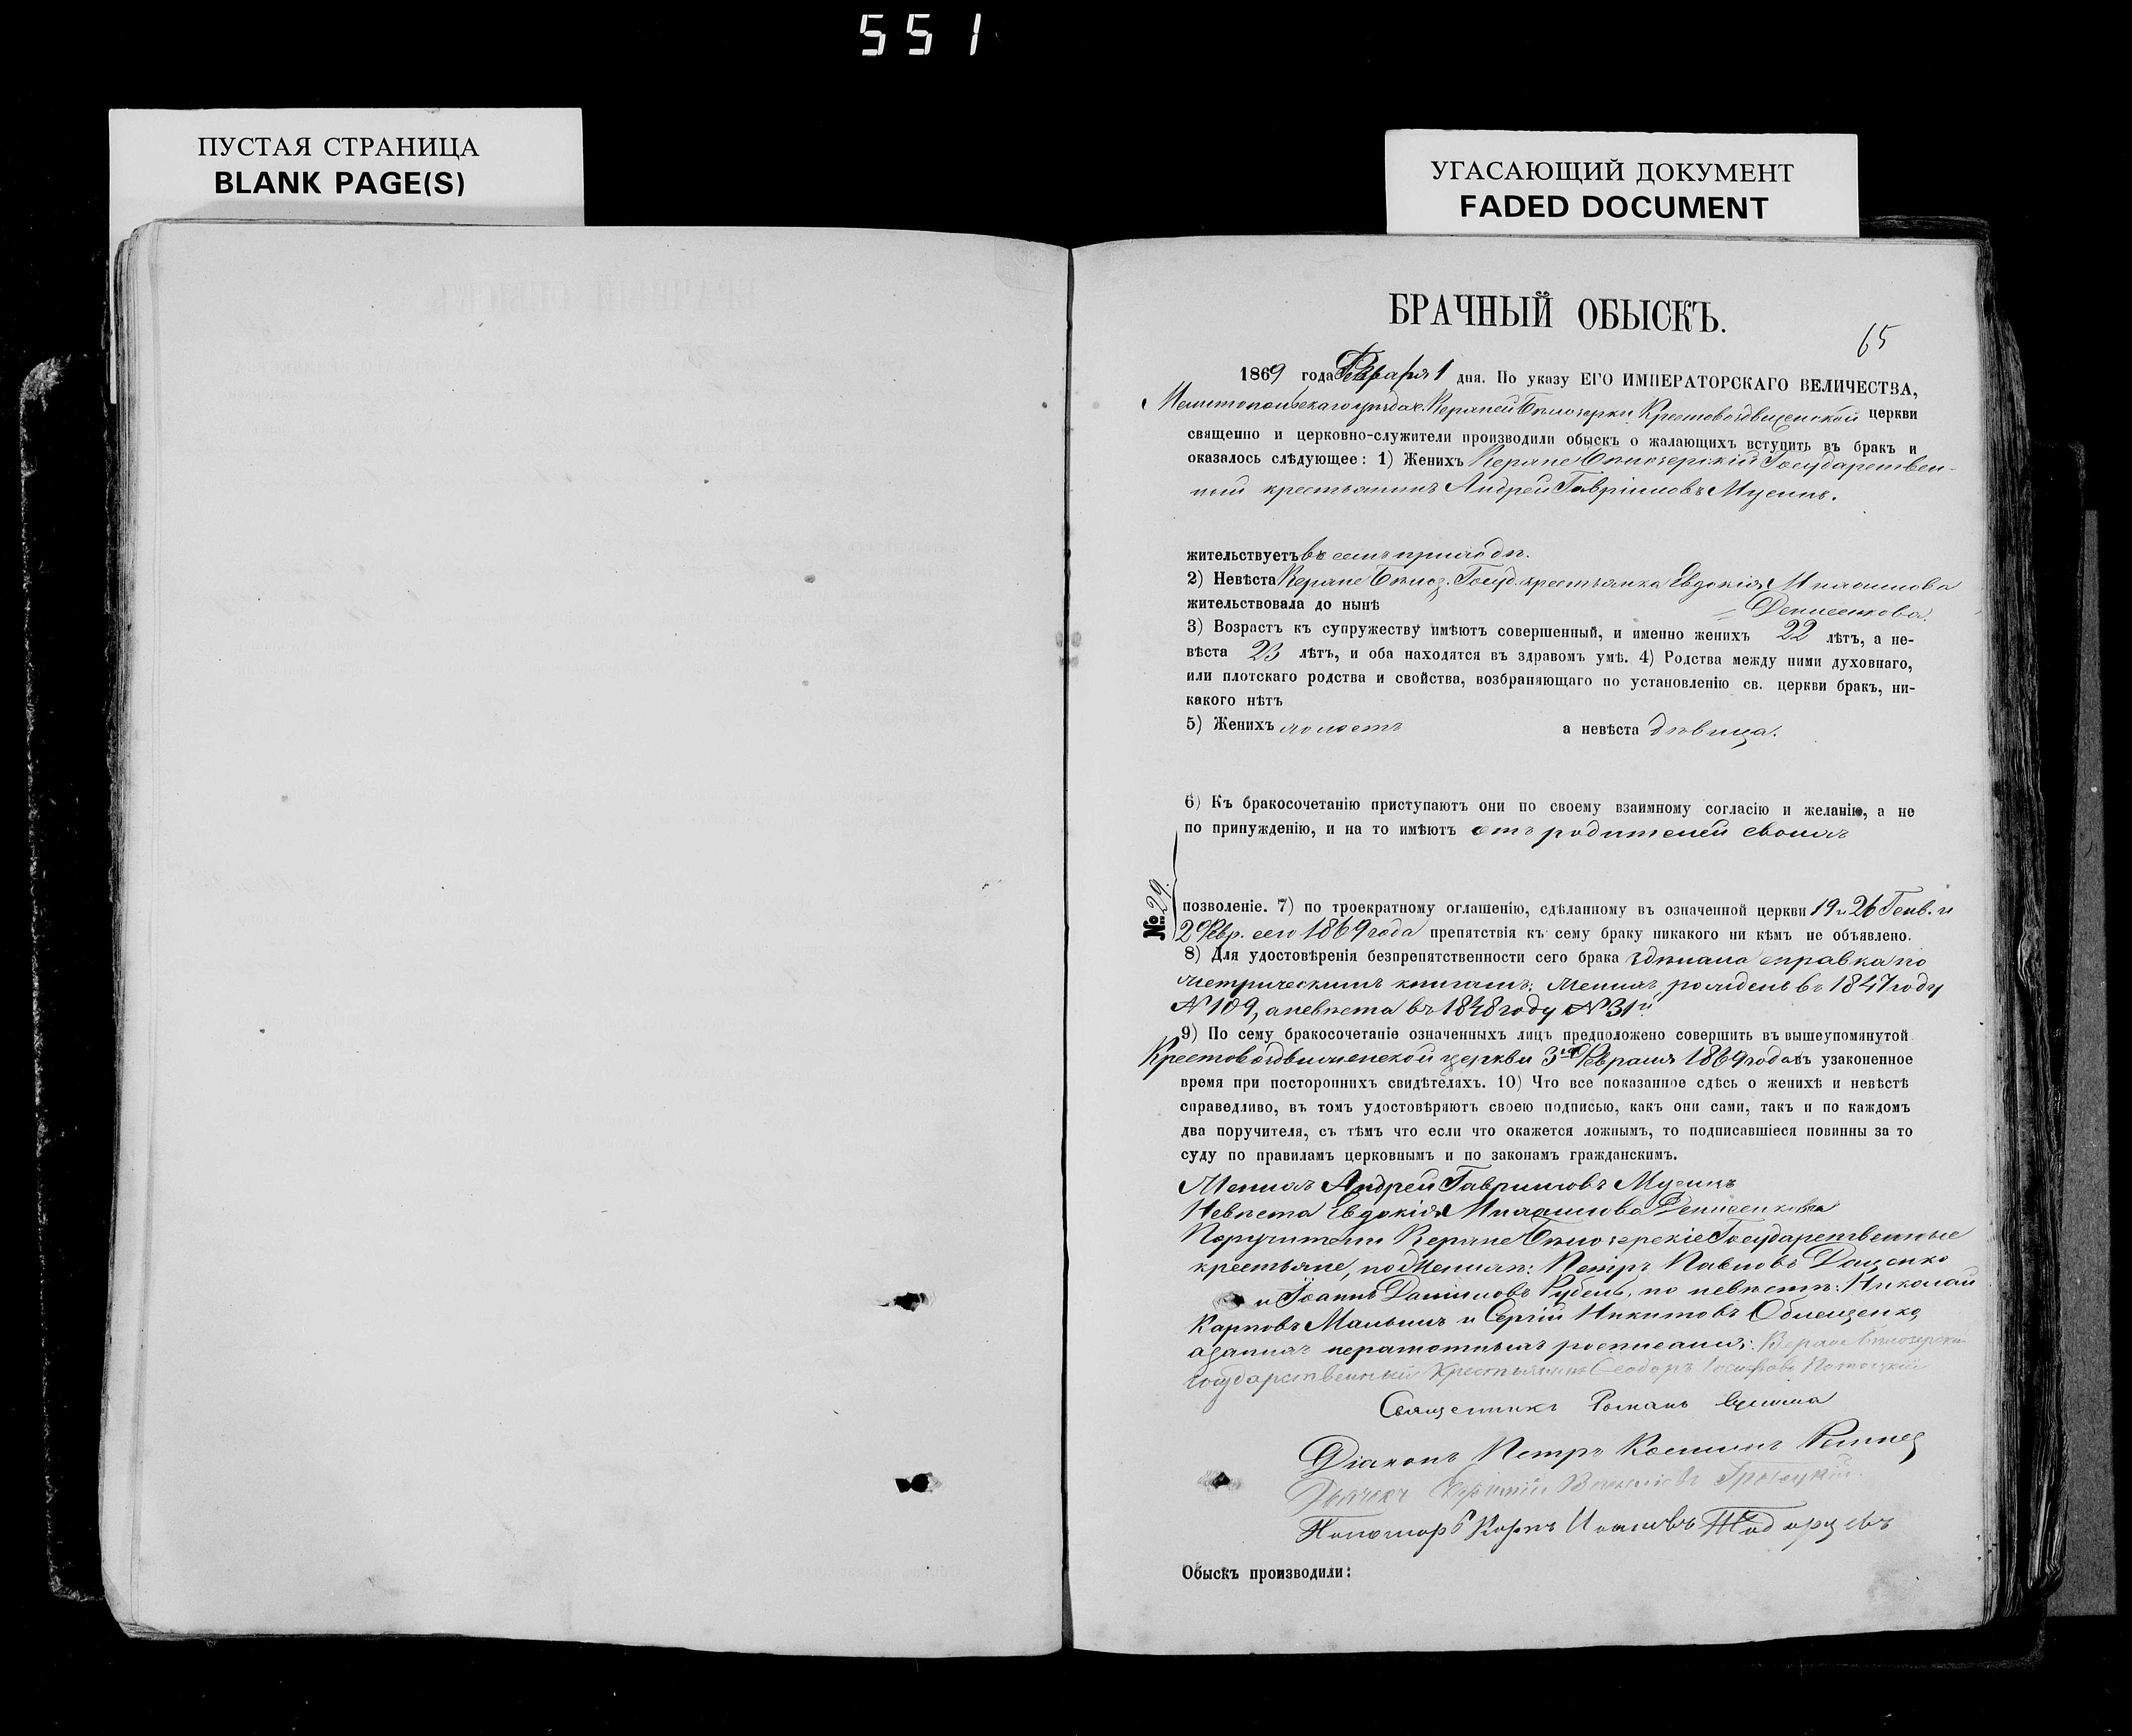 551
ПУСТАЯ СТРАНИЦА
BLANK PAGE(S)
УГАСАЮЩИЙ ДОКУМЕНТ
FADED DOCUMENT
БРАЧНЫЙ ОБЫСКЪ.
65
1869 года Февраля 1 дня. По указу ЕГО ИМПЕРАТОРСКАГО ВЕЛИЧЕСТВА,
Мелитопольскаго уѣзда с. Верхней Бѣлозерки Крестовоздвиженской церкви
священно и церковно-служители производили обыскъ о жалающихъ вступить въ бракъ и
оказалось слѣдующее: 1) Женихъ Верхне Бѣлозерскій Государствен-
ный крестьянинъ Андрей Гавріиловъ Мусинъ.
жительствуетъ въ семъ приходѣ.
2) Невѣста Верхне Бѣлоз. Госуд. крестьянка Евдокія Михаилова
жительствовала до нынѣ Денисенкова.
3) Возрастъ къ супружеству имѣютъ совершенный, и именно женихъ 22 лѣтъ, а не-
вѣста 23 лѣтъ, и оба находятся въ здравомъ умѣ. 4) Родства между ними духовнаго,
или плотскаго родства и свойства, возбраняющаго по установленію св. церкви бракъ, ни-
какого нѣтъ
5) Женихъ холостъ а невѣста дѣвица.
6) Къ бракосочетанію приступаютъ они по своему взаимному согласію и желанію, а не
по принужденію, и на то имѣютъ отъ родителей своихъ
№ 29.
позволеніе. 7) по троекратному оглашенію, сдѣланному въ означенной церкви 19 и 26 Генв. и
2 Февр. сего 1869 года препятствія къ сему браку никакого ни кѣмъ не объявлено.
8) Для удостовѣренія безпрепятственности сего брака здѣлана справка по
метрическимъ книгамъ: женихъ рожденъ въ 1847 году
№ 109, а невѣста въ 1848 году № 31й
9) По сему бракосочетаніе означенныхъ лицъ предположено совершить въ вышеупомянутой
Крестовоздвиженской церкви 3го Февраля 1869 года въ узаконенное
время при постороннихъ свидѣтеляхъ. 10) Что все показанное сдѣсь о женихѣ и невѣстѣ
справедливо, въ томъ удостовѣряютъ своею подписью, какъ они сами, такъ и по каждомъ
два поручителя, съ тѣмъ что если что окажется ложнымъ, то подписавшіеся повинны за то
суду по правиламъ церковнымъ и по законамъ гражданскимъ.
Женихъ Андрей Гавриловъ Мусинъ
Невѣста Евдокія Михаилова Денисенкова
Поручители Верхне Бѣлозерскіе Государственные
крестьяне, по Женихѣ: Петръ Павловъ Даценко
и Іоаннъ Даниловъ Рубель, по невѣстѣ: Николай
Карповъ Малышъ и Сергій Никитовъ
а за нихъ неграмотныхъ росписался: Верхне Бѣлозерскій
государственный крестьянинъ Ѳеодоръ
Священникъ Романъ
Діаконъ Петръ Косминъ
Дьячекъ
Пономарь Карпъ
Обыскъ производили: